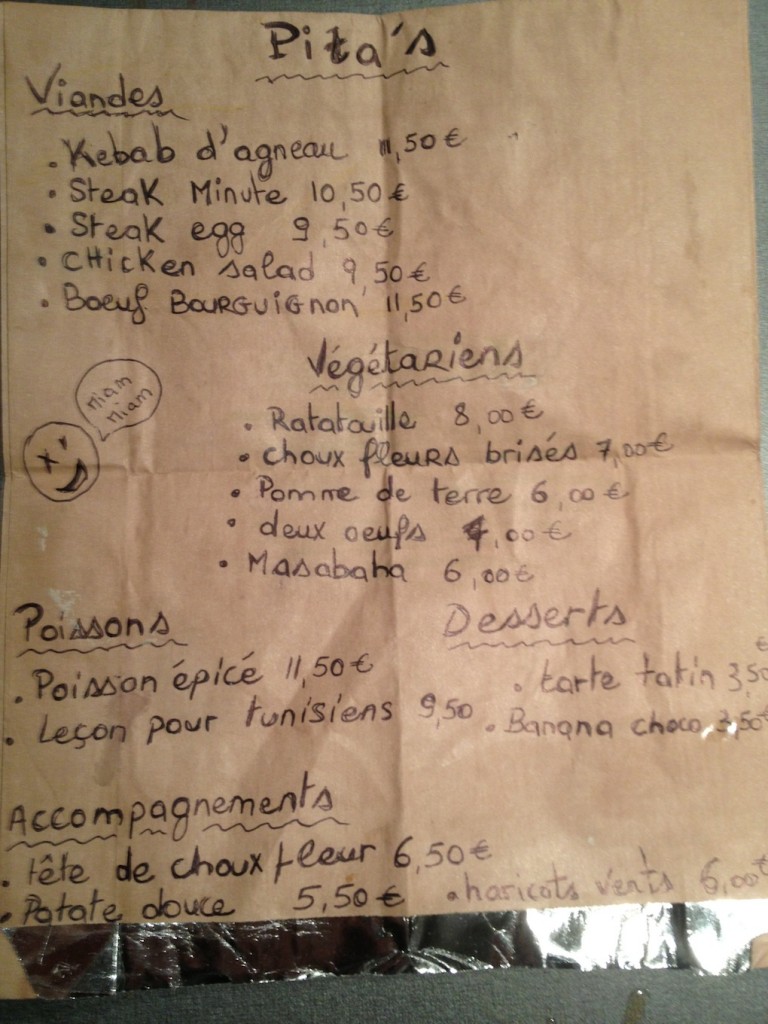 Pita's
Viandes
. Kebab d'agneau 11,50 €
• Steak Minute 10,50 €
• Steak egg 9,50 €
• CHicKen salad 9,50 €
• Boeuf BOURGUIGNON 11,50 €
Végétariens
Miam
Miam
• Ratatouille 8,00 €
• choux fleurs brisés 7,00 €
• Pomme de terre 6,00 €
• deux oeufs 4,00 €
• Masabaha 6,00 €
Poissons
. Poisson épicé 11,50 €
. Leçon pour tunisiens 9,50
Desserts
. tarte tatin 3,50 €
. Banana choco 3,50 €
Accompagnements
. tête de choux fleur 6,50 €
. Patate douce 5,50 €
. haricots verts 6,00 €